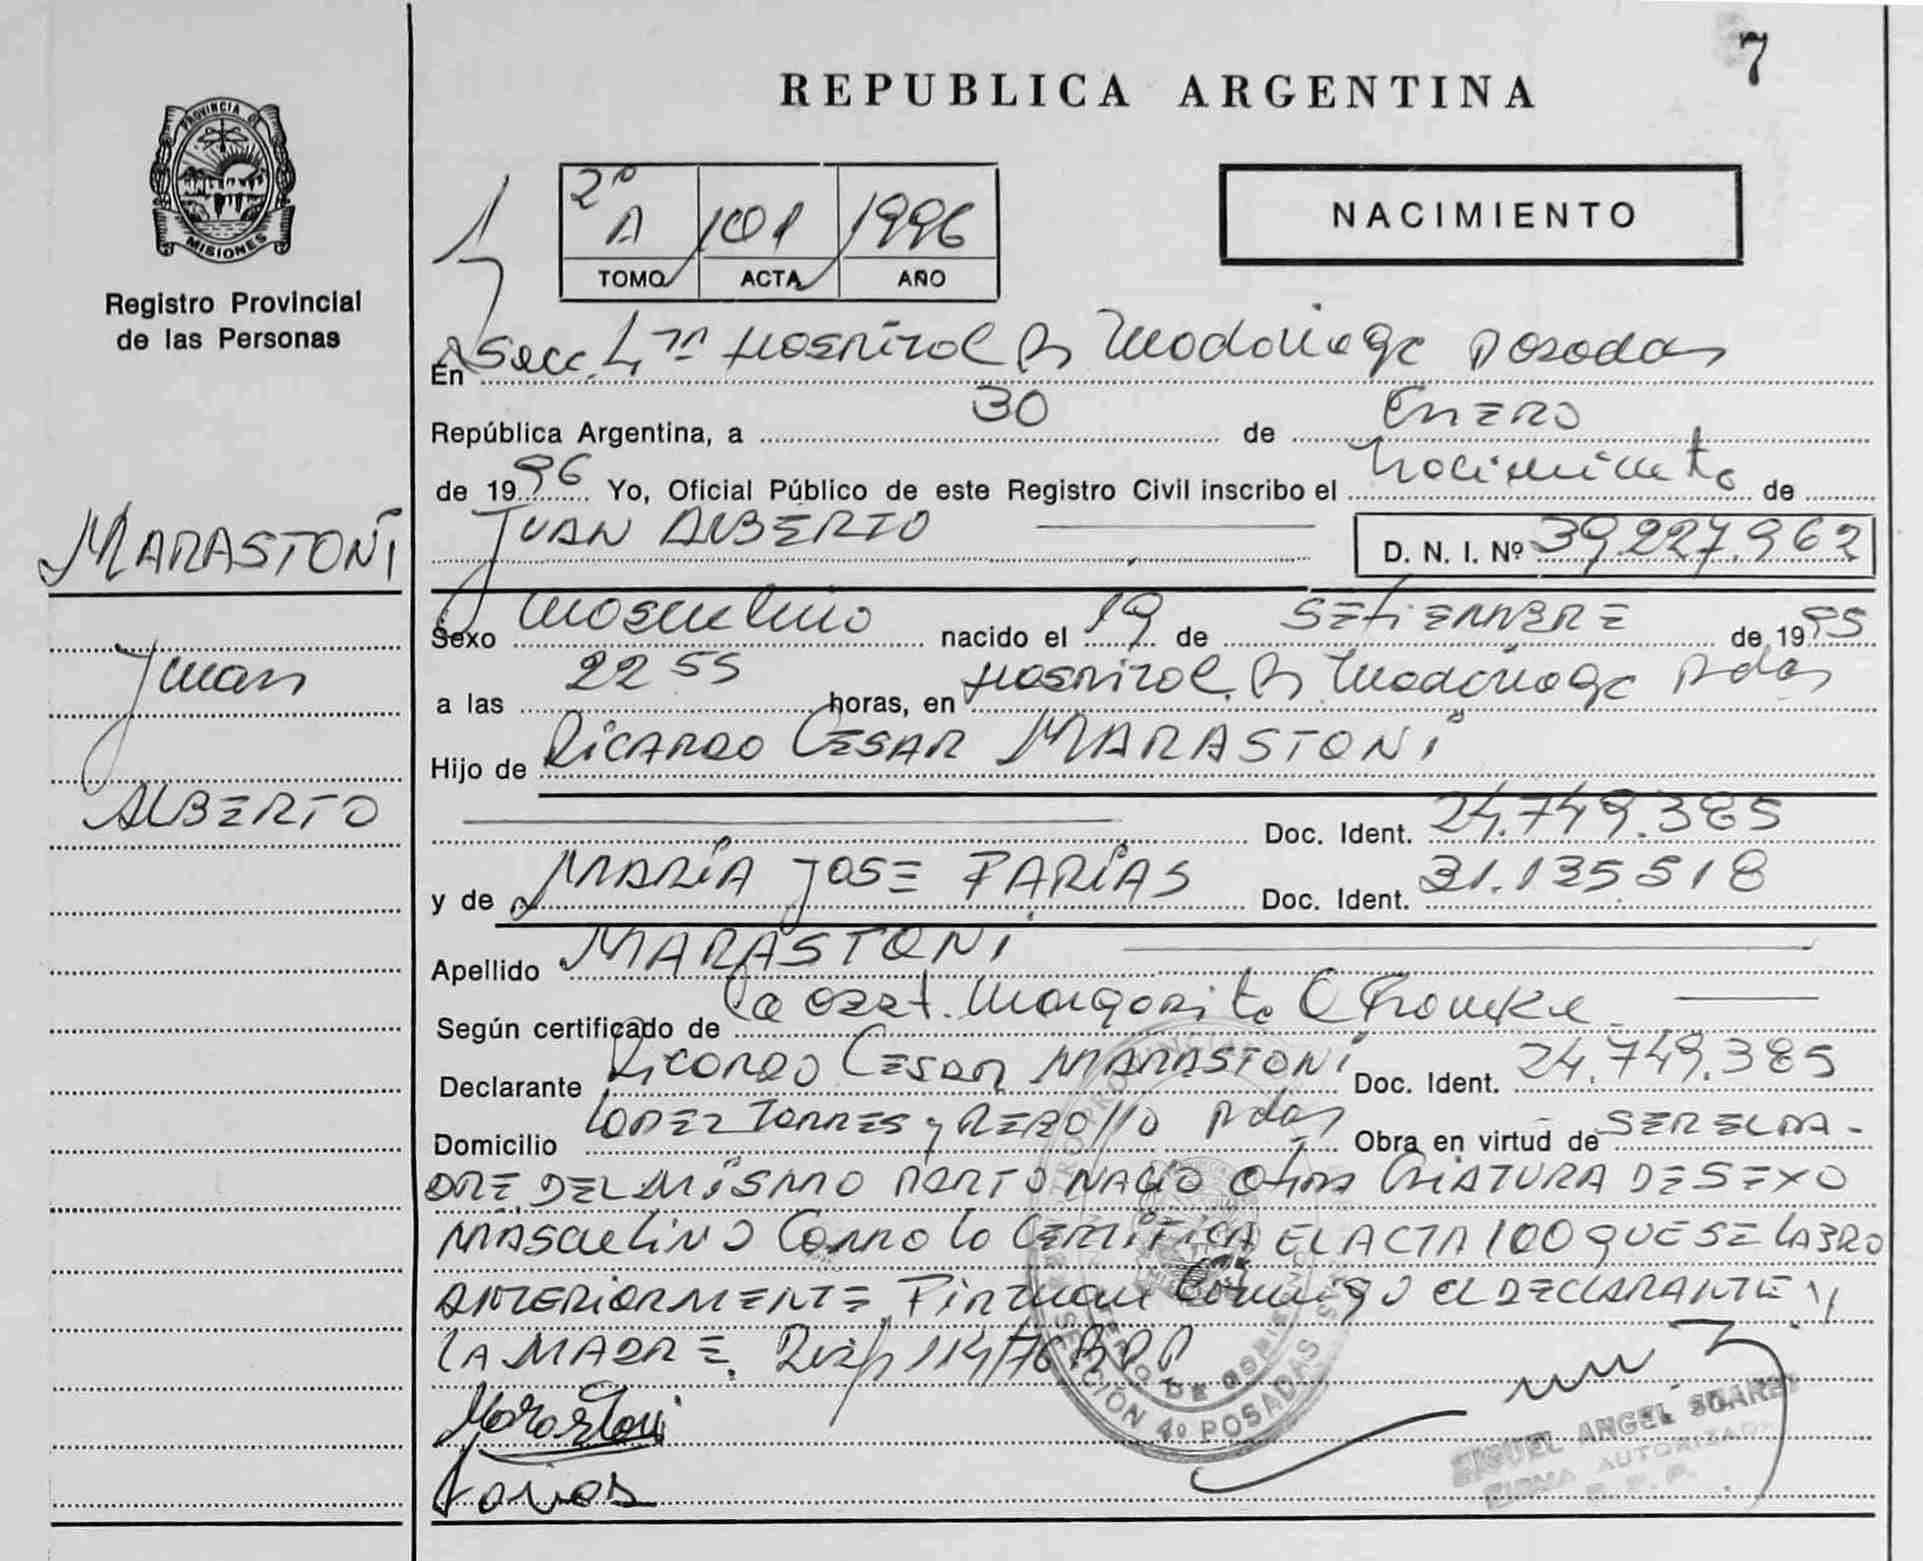 7
REPUBLICA ARGENTINA
PROVINCIA DE
MISIONES
Registro Provincial
de las Personas
2º
A 101 1996
TOMO ACTA AÑO
NACIMIENTO
En Secc. 4ta Hospital R Madariaga Posadas
República Argentina, a 30 de Enero
de 1996 Yo, Oficial Público de este Registro Civil inscribo el nacimiento de
JUAN ALBERTO D. N. I. Nº 39.227.962
MARASTONI
Juan
ALBERTO
Sexo masculino nacido el 19 de SETIEMBRE de 1995
a las 22 55 horas, en Hospital R Madariaga Pdas
Hijo de RICARDO CESAR MARASTONI
Doc. Ident. 24.749.385
y de MARIA JOSE FARIAS Doc. Ident. 31.135.518
Apellido MARASTONI
Según certificado de la Obst. Margarita
Declarante RICARDO CESAR MARASTONI Doc. Ident. 24.749.385
Domicilio LOPEZ TORRES y REBOLLO Pdas Obra en virtud de SER EL PA-
DRE DEL MISMO PARTO NACIO OTRA CRIATURA DE SEXO
MASCULINO COMO LO CERTIFICA EL ACTA 100 QUE SE LABRO
ANTERIORMENTE Firman Conmigo EL DECLARANTE y
LA MADRE.
Marastoni
Farias
SECCIÓN 4º POSADAS
MIGUEL ANGEL SUAREZ
FIRMA AUTORIZADA
R. P. P.